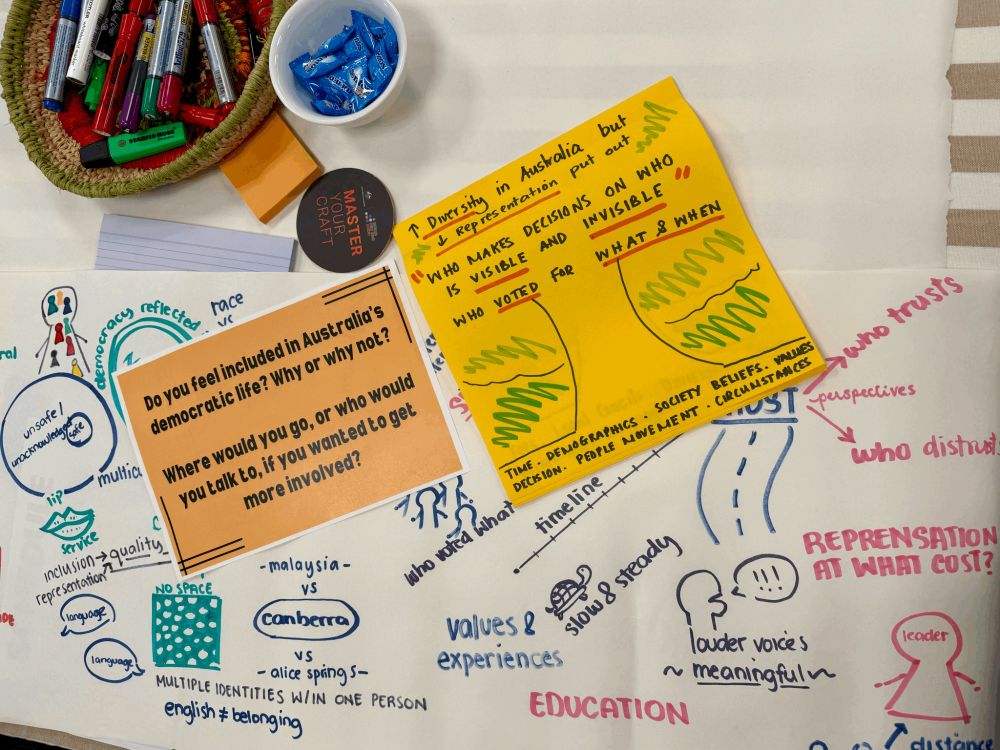 STABILO BOSS
MASTER
YOUR
CRAFT
↑ Diversity in Australia but
↓ Representation put out
"WHO MAKES DECISIONS ON WHO
IS VISIBLE AND INVISIBLE"
WHO VOTED FOR WHAT & WHEN
TIME. DEMOGRAPHICS. SOCIETY BELIEFS. VALUES
DECISION. PEOPLE MOVEMENT. CIRCUMSTANCES
Do you feel included in Australia's
democratic life? Why or why not?
Where would you go, or who would
you talk to, if you wanted to get
more involved?
democracy reflected
race
vs
unsafe/
unacknowledged
safe
lip
service
inclusion → quality
representation
language
language
NO SPACE
-malaysia-
vs
canberra
vs
-alice springs-
MULTIPLE IDENTITIES W/IN ONE PERSON
english ≠ belonging
who voted what
timeline
slow & steady
values &
experiences
EDUCATION
who trusts
perspectives
who distrust
REPRENSATION
AT WHAT COST?
!!!
louder voices
~ meaningful ~
leader
distance